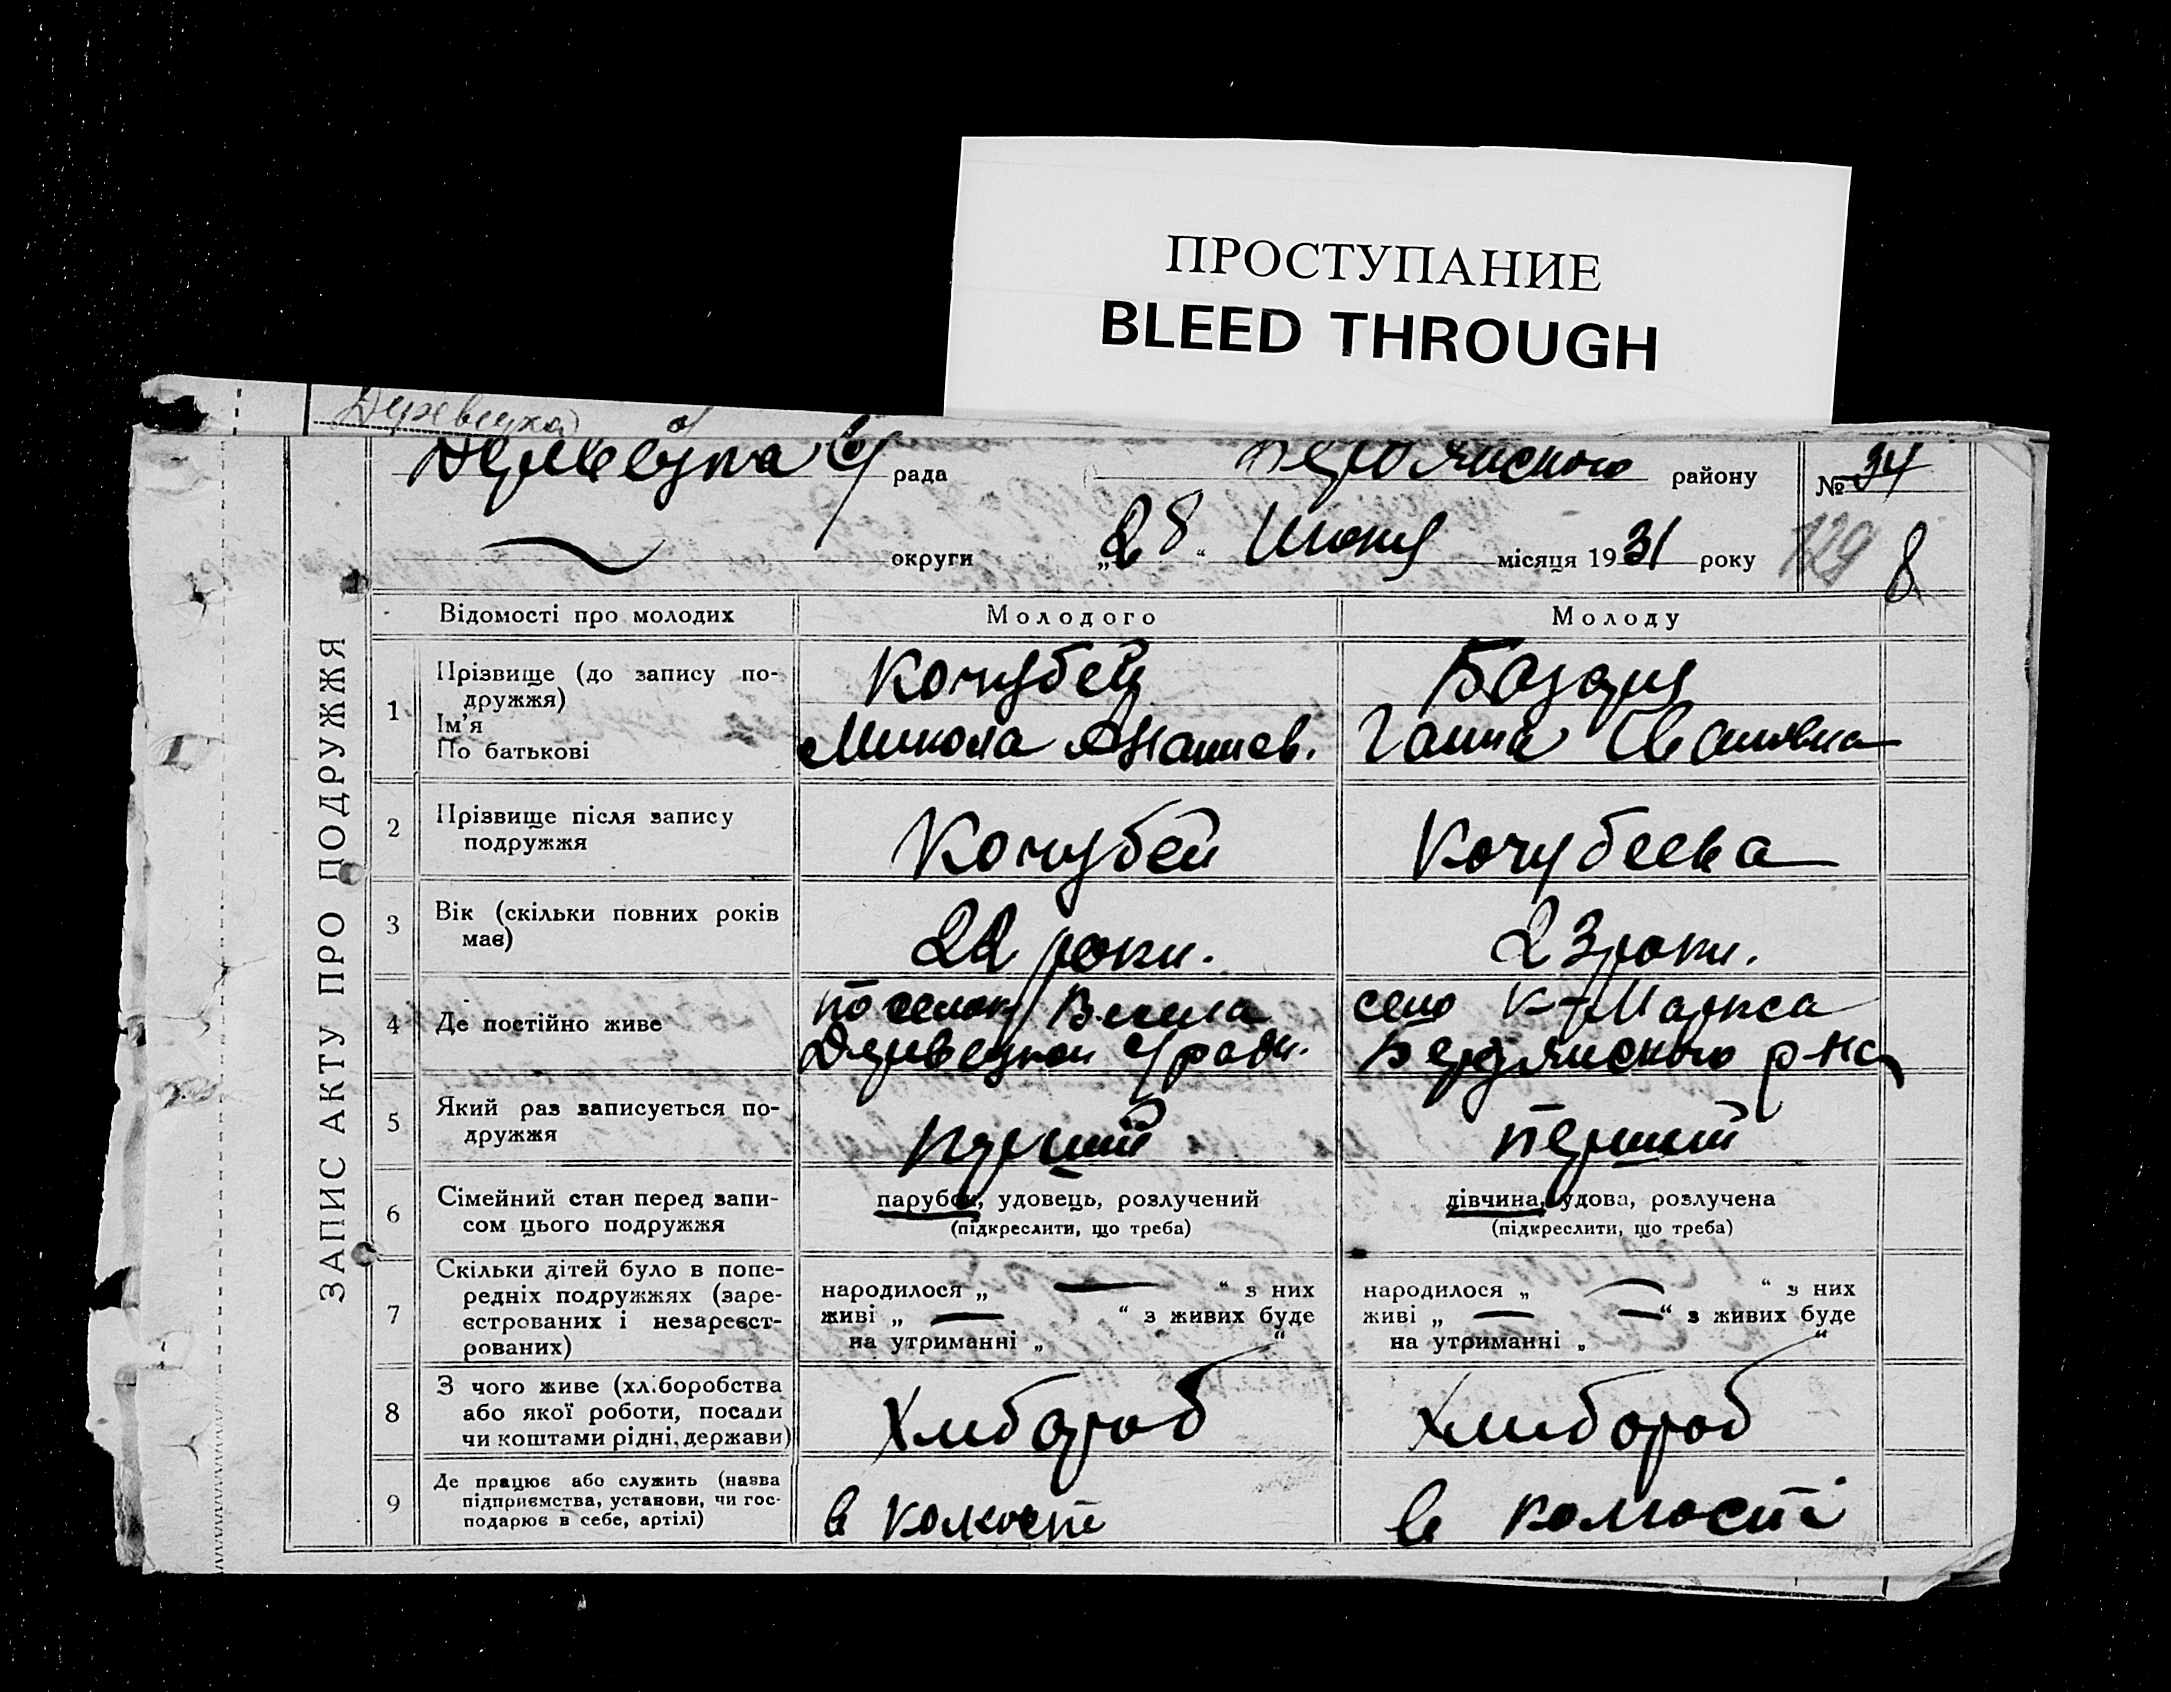 ПРОСТУПАНИЕ
BLEED THROUGH
рада Бердянского району № 34
округи „28“ Июня місяця 1931 року 129 8
ЗАПИС АКТУ ПРО ПОДРУЖЖЯ
Відомості про молодих Молодого Молоду
1 Прізвище (до запису по-
дружжя)
Ім’я
По батькові
Кочубей
Микола Ананиев.
Базара
Ганна Ивановна
2 Прізвище після запису
подружжя
Кочубей
Кочубеева
3 Вік (скільки повних років
має)
22 роки.
23 роки.
4 Де постійно живе
поселок Весела
с/ ради.
село К-Маркса
Бердянского р-на
5 Який раз записується по-
дружжя
перший
перший
6 Сімейний стан перед запи-
сом цього подружжя
парубок, удовець, розлучений
(підкреслити, що треба)
дівчина, удова, розлучена
(підкреслити, що треба)
7 Скільки дітей було в попе-
редніх подружжях (заре-
єстрованих і незареєст-
рованих)
народилося „ — “ з них
живі „ — “ з живих буде
на утриманні „ “
народилося „ — “ з них
живі „ — “ з живих буде
на утриманні „ “
8 З чого живе (хліборобства
або якої роботи, посади
чи коштами рідні, держави)
Хлибороб
Хлибороб
9 Де працює або служить (назва
підприємства, установи, чи гос-
подарює в себе, артілі)
в колгоспі
в колгоспі